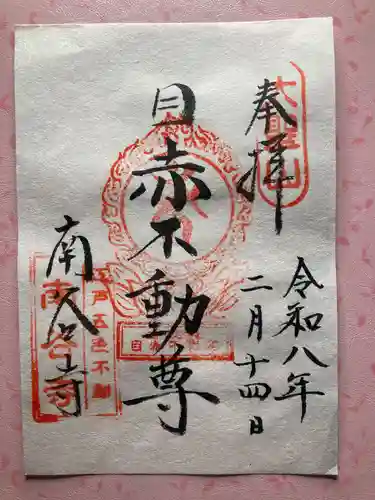 奉拝
大聖山
令和八年
二月十四日
目赤不動尊
江戸五色不動
南谷寺